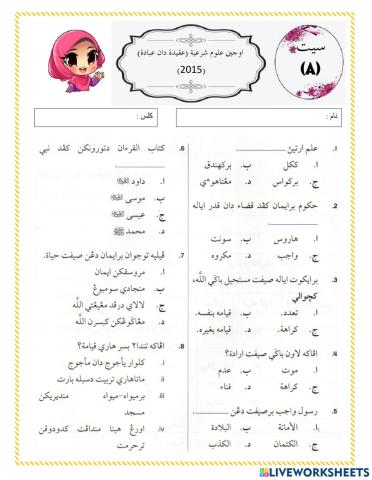 اوجين علوم شرعية (عقيدة دان عبادة)
(2015)
سيت
(A)
نام :
كلس :
1. علم ارتيڽ ....................
ا. ككل ب. بركهندق
ج. بركواس د. مڠتاهوءي
2. حكوم برايمان كڤد قضاء دان قدر اياله
....................
ا. هاروس ب. سونت
ج. واجب د. مكروه
3. برايكوت اياله صيفت مستحيل باݢي الله،
كچوالي
ا. تعدد. ب. قيامه بنفسه.
ج. كراهة. د. قيامه بغيره.
4. اڤاكه لاون باݢي صيفت ارادة؟
ا. موت ب. عدم
ج. كراهة د. فناء
5. رسول واجب برصيفت دڠن ....................
ا. الأمانة ب. البلادة
ج. الكتمان د. الكذب
6. كتاب القرءان دتورونكن كڤد نبي
....................
ا. داود ﷺ
ب. موسى ﷺ
ج. عيسى ﷺ
د. محمد ﷺ
7. ڤيليه توجوان برايمان دڠن صيفت حياة.
ا. مروسقكن ايمان
ب. منجادي سومبوڠ
ج. لالاي درقد مڠيڠتي الله
د. مڠاݢوڠكن كبسرن الله
8. اڤاكه تندا٢ بسر هاري قيامة؟
i. كلوار يأجوج دان مأجوج
ii. ماتاهاري تربيت دسبله بارت
iii. برميواه-ميواه منديريكن
مسجد
iv. اورڠ هينا منداڤت كدودوقن
ترحرمت
LIVEWORKSHEETS